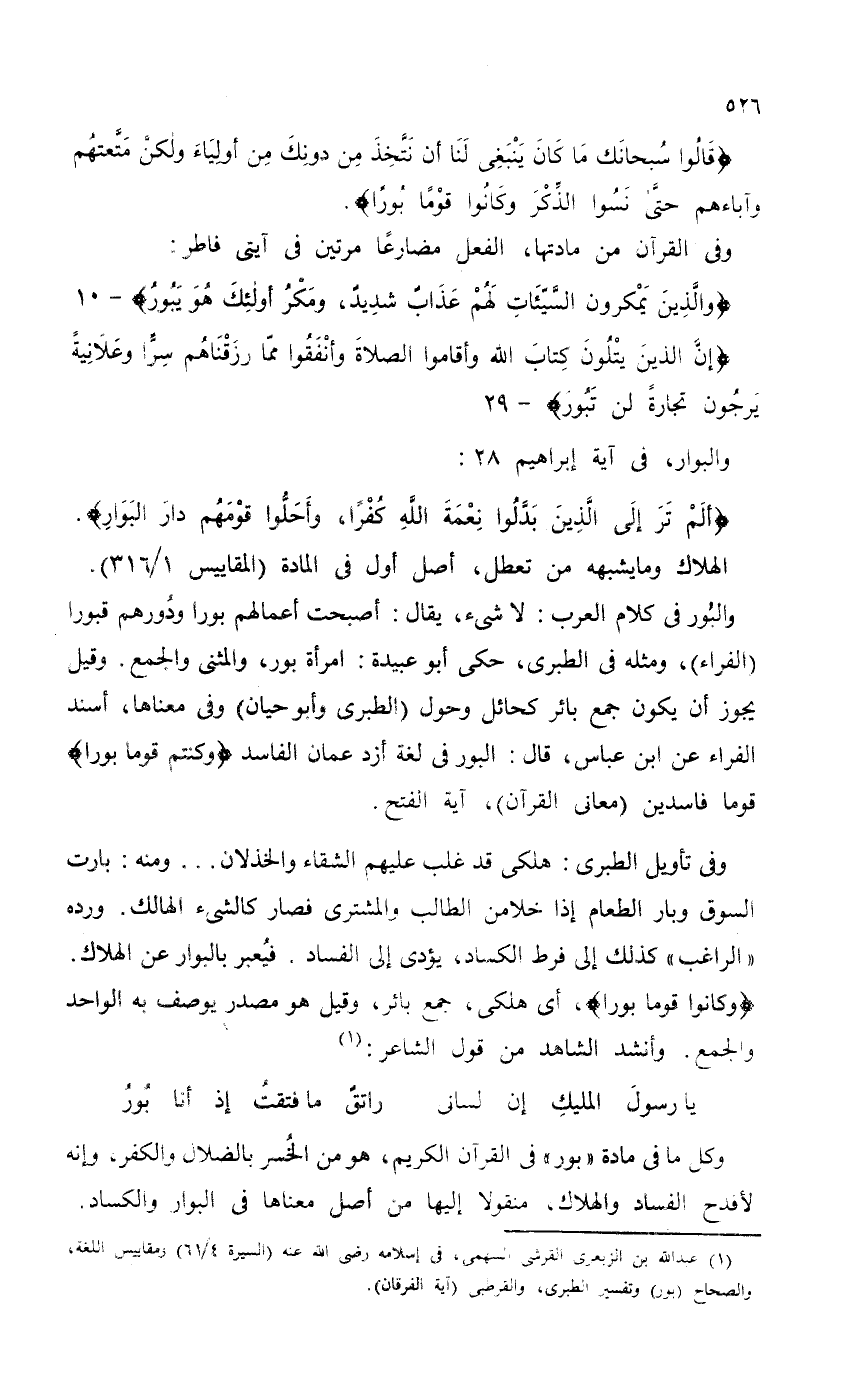 ٥٢٦
﴿قَالُوا سُبحانَك مَا كَانَ يَنْبَغِى لَنَا أن نَتَّخِذَ مِن دونِكَ مِن أولِيَاءَ ولٰكنْ مَتَّعتهُم
وآباءهم حتىَّٰ نَسُوا الذِّكْرَ وكَانُوا قوْمًا بُورًا﴾ .
وفى القرآن من مادتها، الفعل مضارعًا مرتين فى آيتى فاطر :
﴿والَّذِينَ يَمْكرون السَّيِّئَاتِ لَهُمْ عَذَابٌ شديدٌ، ومَكْرُ أولٰئِكَ هُوَ يَبُورُ﴾ - ١٠
﴿إنَّ الذينَ يتْلُونَ كِتابَ الله وأقاموا الصلاةَ وأنْفَقُوا ممّا رزَقْنَاهُم سِرًّا وعَلَانِيةً
يَرجُون تجارةً لن تَبُورَ﴾ - ٢٩
والبوار، فى آية إبراهيم ٢٨ :
﴿ألَمْ تَرَ إلَى الَّذِينَ بَدَّلُوا نِعْمَةَ اللَّهِ كُفْرًا، وأَحَلُّوا قوْمَهُم دارَ البَوَارِ﴾ .
الهلاك ومايشبهه من تعطل، أصل أول فى المادة (المقاييس ٣١٦/١).
والبُور فى كلام العرب : لا شىء، يقال : أصبحت أعمالهم بورا ودُورهم قبورا
(الفراء)، ومثله فى الطبرى، حكى أبو عبيدة : امرأة بور، والمثنى والجمع . وقيل
يجوز أن يكون جمع بائر كحائل وحول (الطبرى وأبو حيان) وفى معناها، أسند
الفراء عن ابن عباس، قال : البور فى لغة أزد عمان الفاسد ﴿وكنتم قوما بورا﴾
قوما فاسدين (معانى القرآن)، آية الفتح .
وفى تأويل الطبرى : هلكى قد غلب عليهم الشقاء والخذلان . . . ومنه : بارت
السوق وبار الطعام إذا خلامن الطالب والمشترى فصار كالشىء الهالك . ورده
«الراغب» كذلك إلى فرط الكساد، يؤدى إلى الفساد . فيُعبر بالبوار عن الهلاك .
﴿وكانوا قوما بورا﴾، أى هلكى، جمع بائر، وقيل هو مصدر يوصف به الواحد
والجمع . وأنشد الشاهد من قول الشاعر :(١)
يا رسولَ المليكِ إن لسانى راتقٌ ما فتقتُ إذ أنا بُورُ
وكل ما فى مادة «بور» فى القرآن الكريم، هو من الخُسر بالضلال والكفر، وإنه
لأفدح الفساد والهلاك، منقولا إليها من أصل معناها فى البوار والكساد.
(١) عبدالله بن الزبعرى القرشى السهمى، فى إسلامه رضى الله عنه (السيرة ٦١/٤) ومقاييس اللغة،
والصحاح (بور) وتفسير الطبرى، والقرطبى (آية الفرقان).